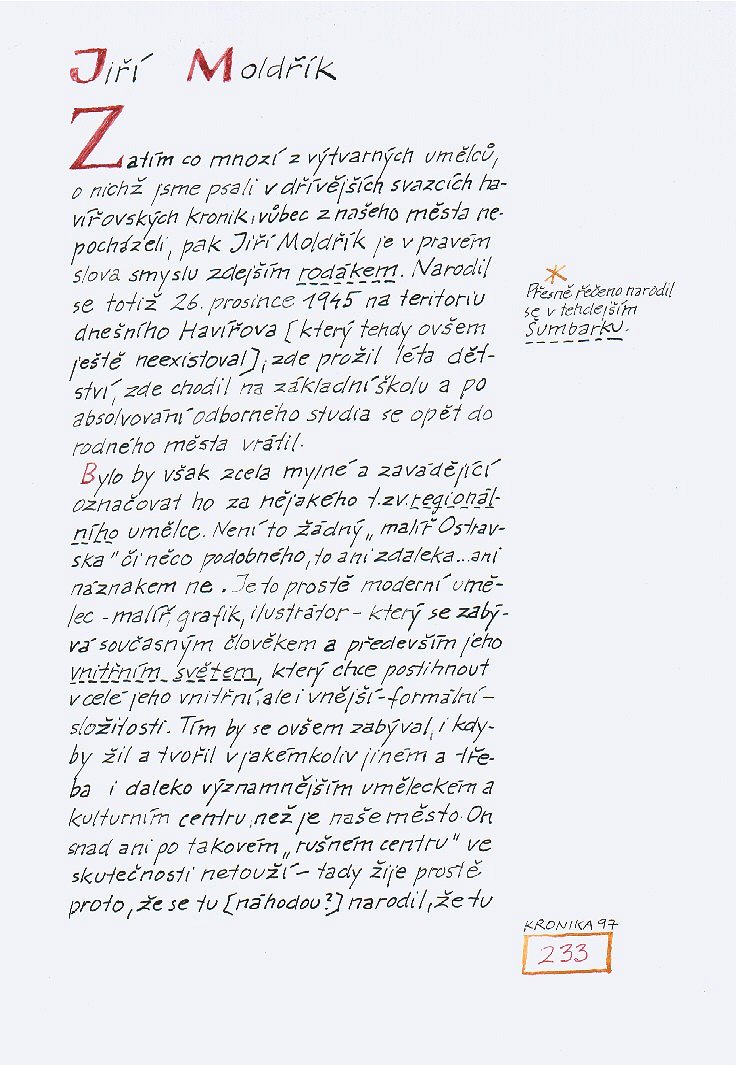 Jiří Moldřík
Zatím co mnozí z výtvarných umělců,
o nichž jsme psali v dřívějších svazcích ha-
vířovských kronik, vůbec z našeho města ne-
pocházeli, pak Jiří Moldřík je v pravém
slova smyslu zdejším rodákem. Narodil
se totiž 26. prosince 1945 na teritoriu
dnešního Havířova [který tehdy ovšem
ještě neexistoval], zde prožil léta dět-
ství, zde chodil na základní školu a po
absolvování odborného studia se opět do
rodného města vrátil.
Bylo by však zcela mylné a zavádějící
označovat ho za nějakého t.zv. regionál-
ního umělce. Není to žádný „malíř Ostrav-
ska" či něco podobného, to ani zdaleka...ani
náznakem ne. Je to prostě moderní umě-
lec - malíř, grafik, ilustrátor - který se zabý-
vá současným člověkem a především jeho
vnitřním světem, který chce postihnout
v celé jeho vnitřní, ale i vnější - formální -
složitosti. Tím by se ovšem zabýval, i kdy-
by žil a tvořil v jakémkoliv jiném a tře-
ba i daleko významnějším uměleckém a
kulturním centru, než je naše město. On
snad ani po takovém „rušném centru" ve
skutečnosti netouží - tady žije prostě
proto, že se tu [náhodou?] narodil, že tu
*
Přesně řečeno narodil
se v tehdejším
Šumbarku.
KRONIKA 97
233